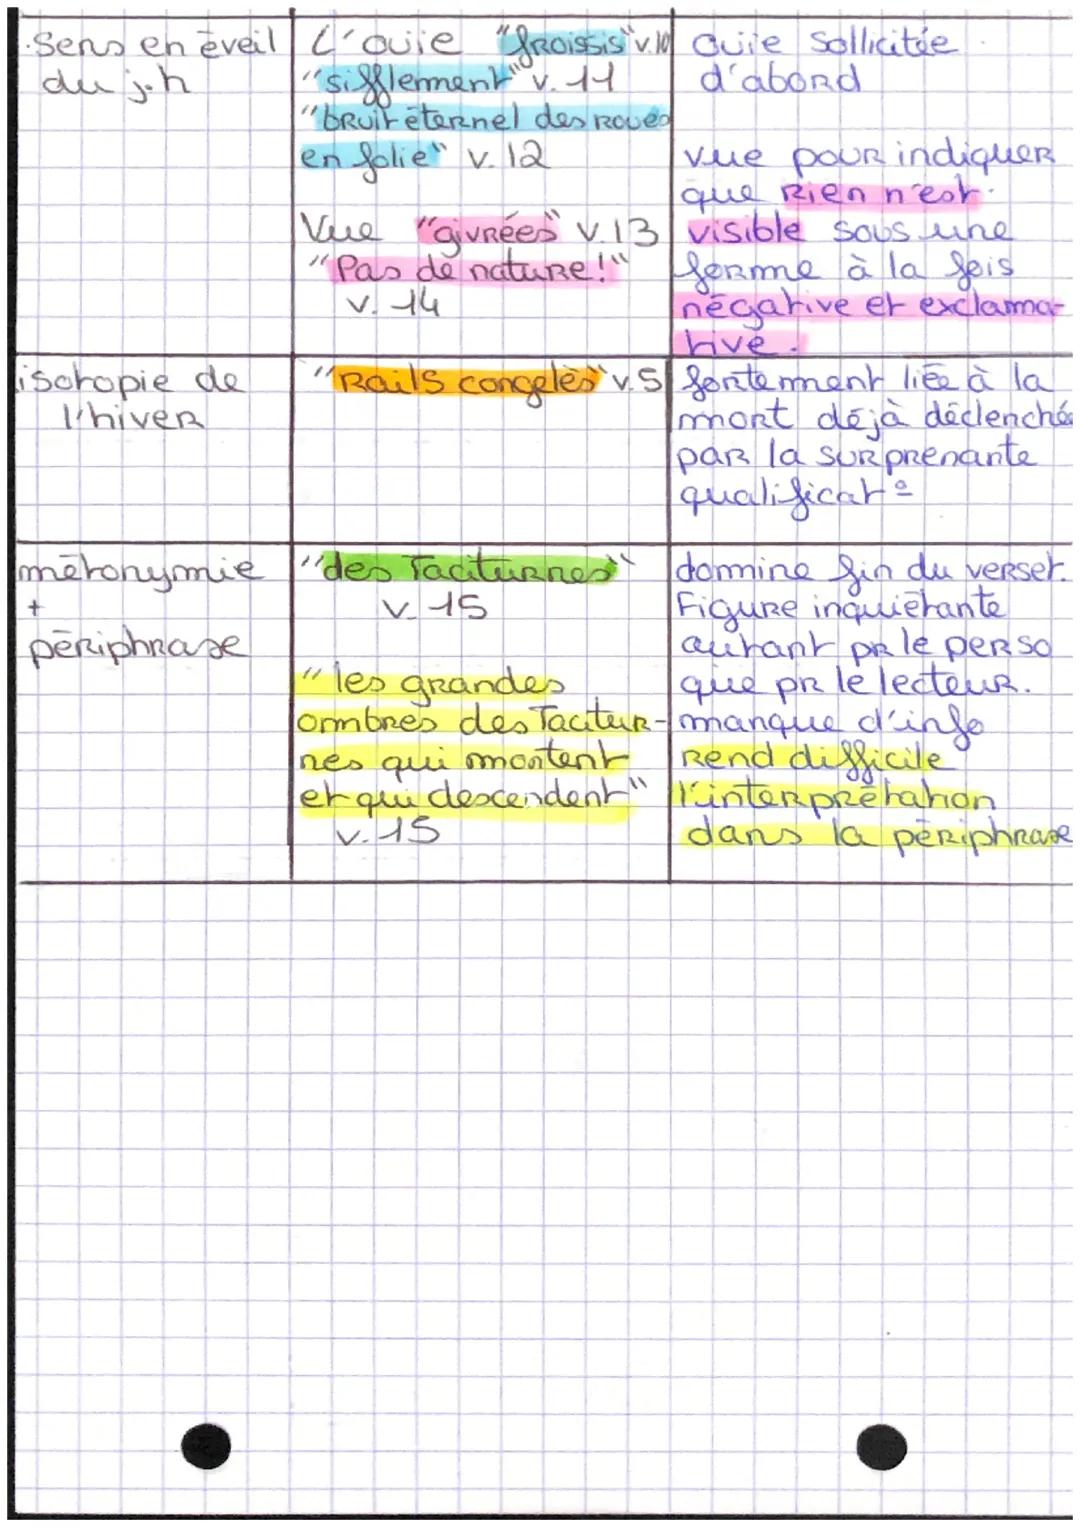 . Sens en éveil
du j.h
L'ouïe "froissis" v.10
"sifflement" v. 11
"bruit éternel des roues
en folie" v. 12
Vue "givrées" v.13
"Pas de nature!"
v. 14
Ouïe sollicitée
d'abord
vue pour indiquer
que rien n'est
visible sous une
forme à la fois
négative et exclama-
tive.
isotopie de
l'hiver
"Rails congelés" v.5
fortement liée à la
mort déjà déclenchée
par la surprenante
qualificat°
métonymie
+
périphrase
"des Taciturnes"
v. 15
"les grandes
ombres des Tacitur-
nes qui montent
et qui descendent"
v. 15
domine fin du verset.
Figure inquiétante
autant pr le perso
que pr le lecteur.
manque d'info
rend difficile
l'interprétation
dans la périphrase